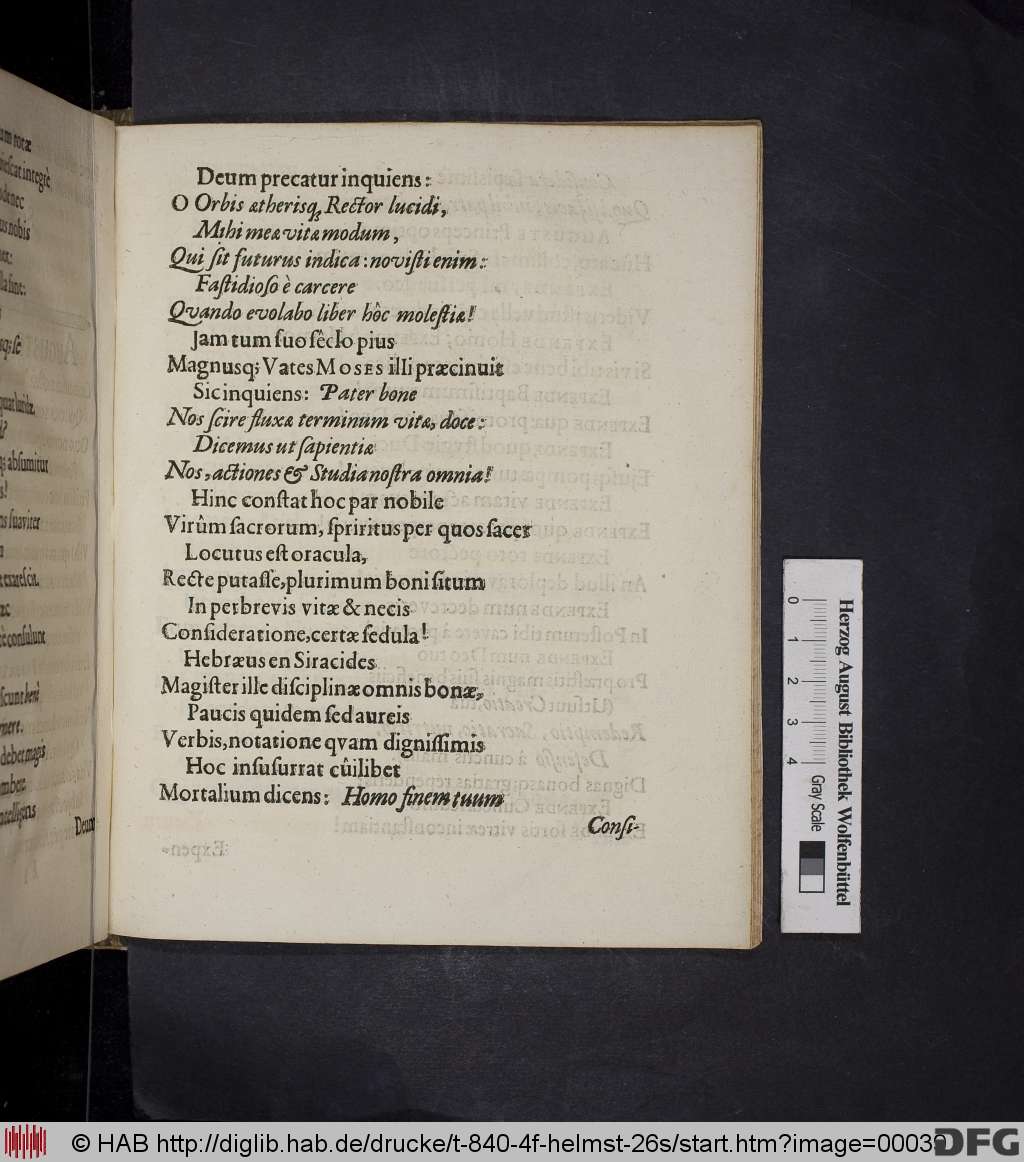 um totæ
nescat integrè
us nobis
la sinc:
absumitur
us suaviter
exarescit.
è consulunt
scunt benè
debet magis
intelligens
Deum
Deum precatur inquiens:
O Orbis ætherisq; Rector lucidi,
Mihi meæ vitæ modum,
Qui ſit futurus indica: noviſti enim:
Faſtidioſo è carcere
Quando evolabo liber hôc moleſtiæ!
Jam tum ſuo ſêclo pius
Magnusq; Vates MOSES illi præcinuit
Sic inquiens: Pater bone
Nos ſcire fluxæ terminum vitæ, doce:
Dicemus ut ſapientiæ
Nos, actiones & Studia noſtra omnia!
Hinc conſtat hoc par nobile
Virûm ſacrorum, ſpriritus per quos ſacer
Locutus eſt oracula,
Recte putaſſe, plurimum boni ſitum
In perbrevis vitæ & necis
Conſideratione, certæ ſedula!
Hebræus en Siracides
Magiſter ille diſciplinæ omnis bonæ,
Paucis quidem ſed aureis
Verbis, notatione qvam digniſſimis
Hoc inſuſurrat cûilibet
Mortalium dicens: Homo finem tuum
Conſi-
0 1 2 3 4
Gray Scale
Herzog August Bibliothek Wolfenbüttel
© HAB http://diglib.hab.de/drucke/t-840-4f-helmst-26s/start.htm?image=00039
DFG